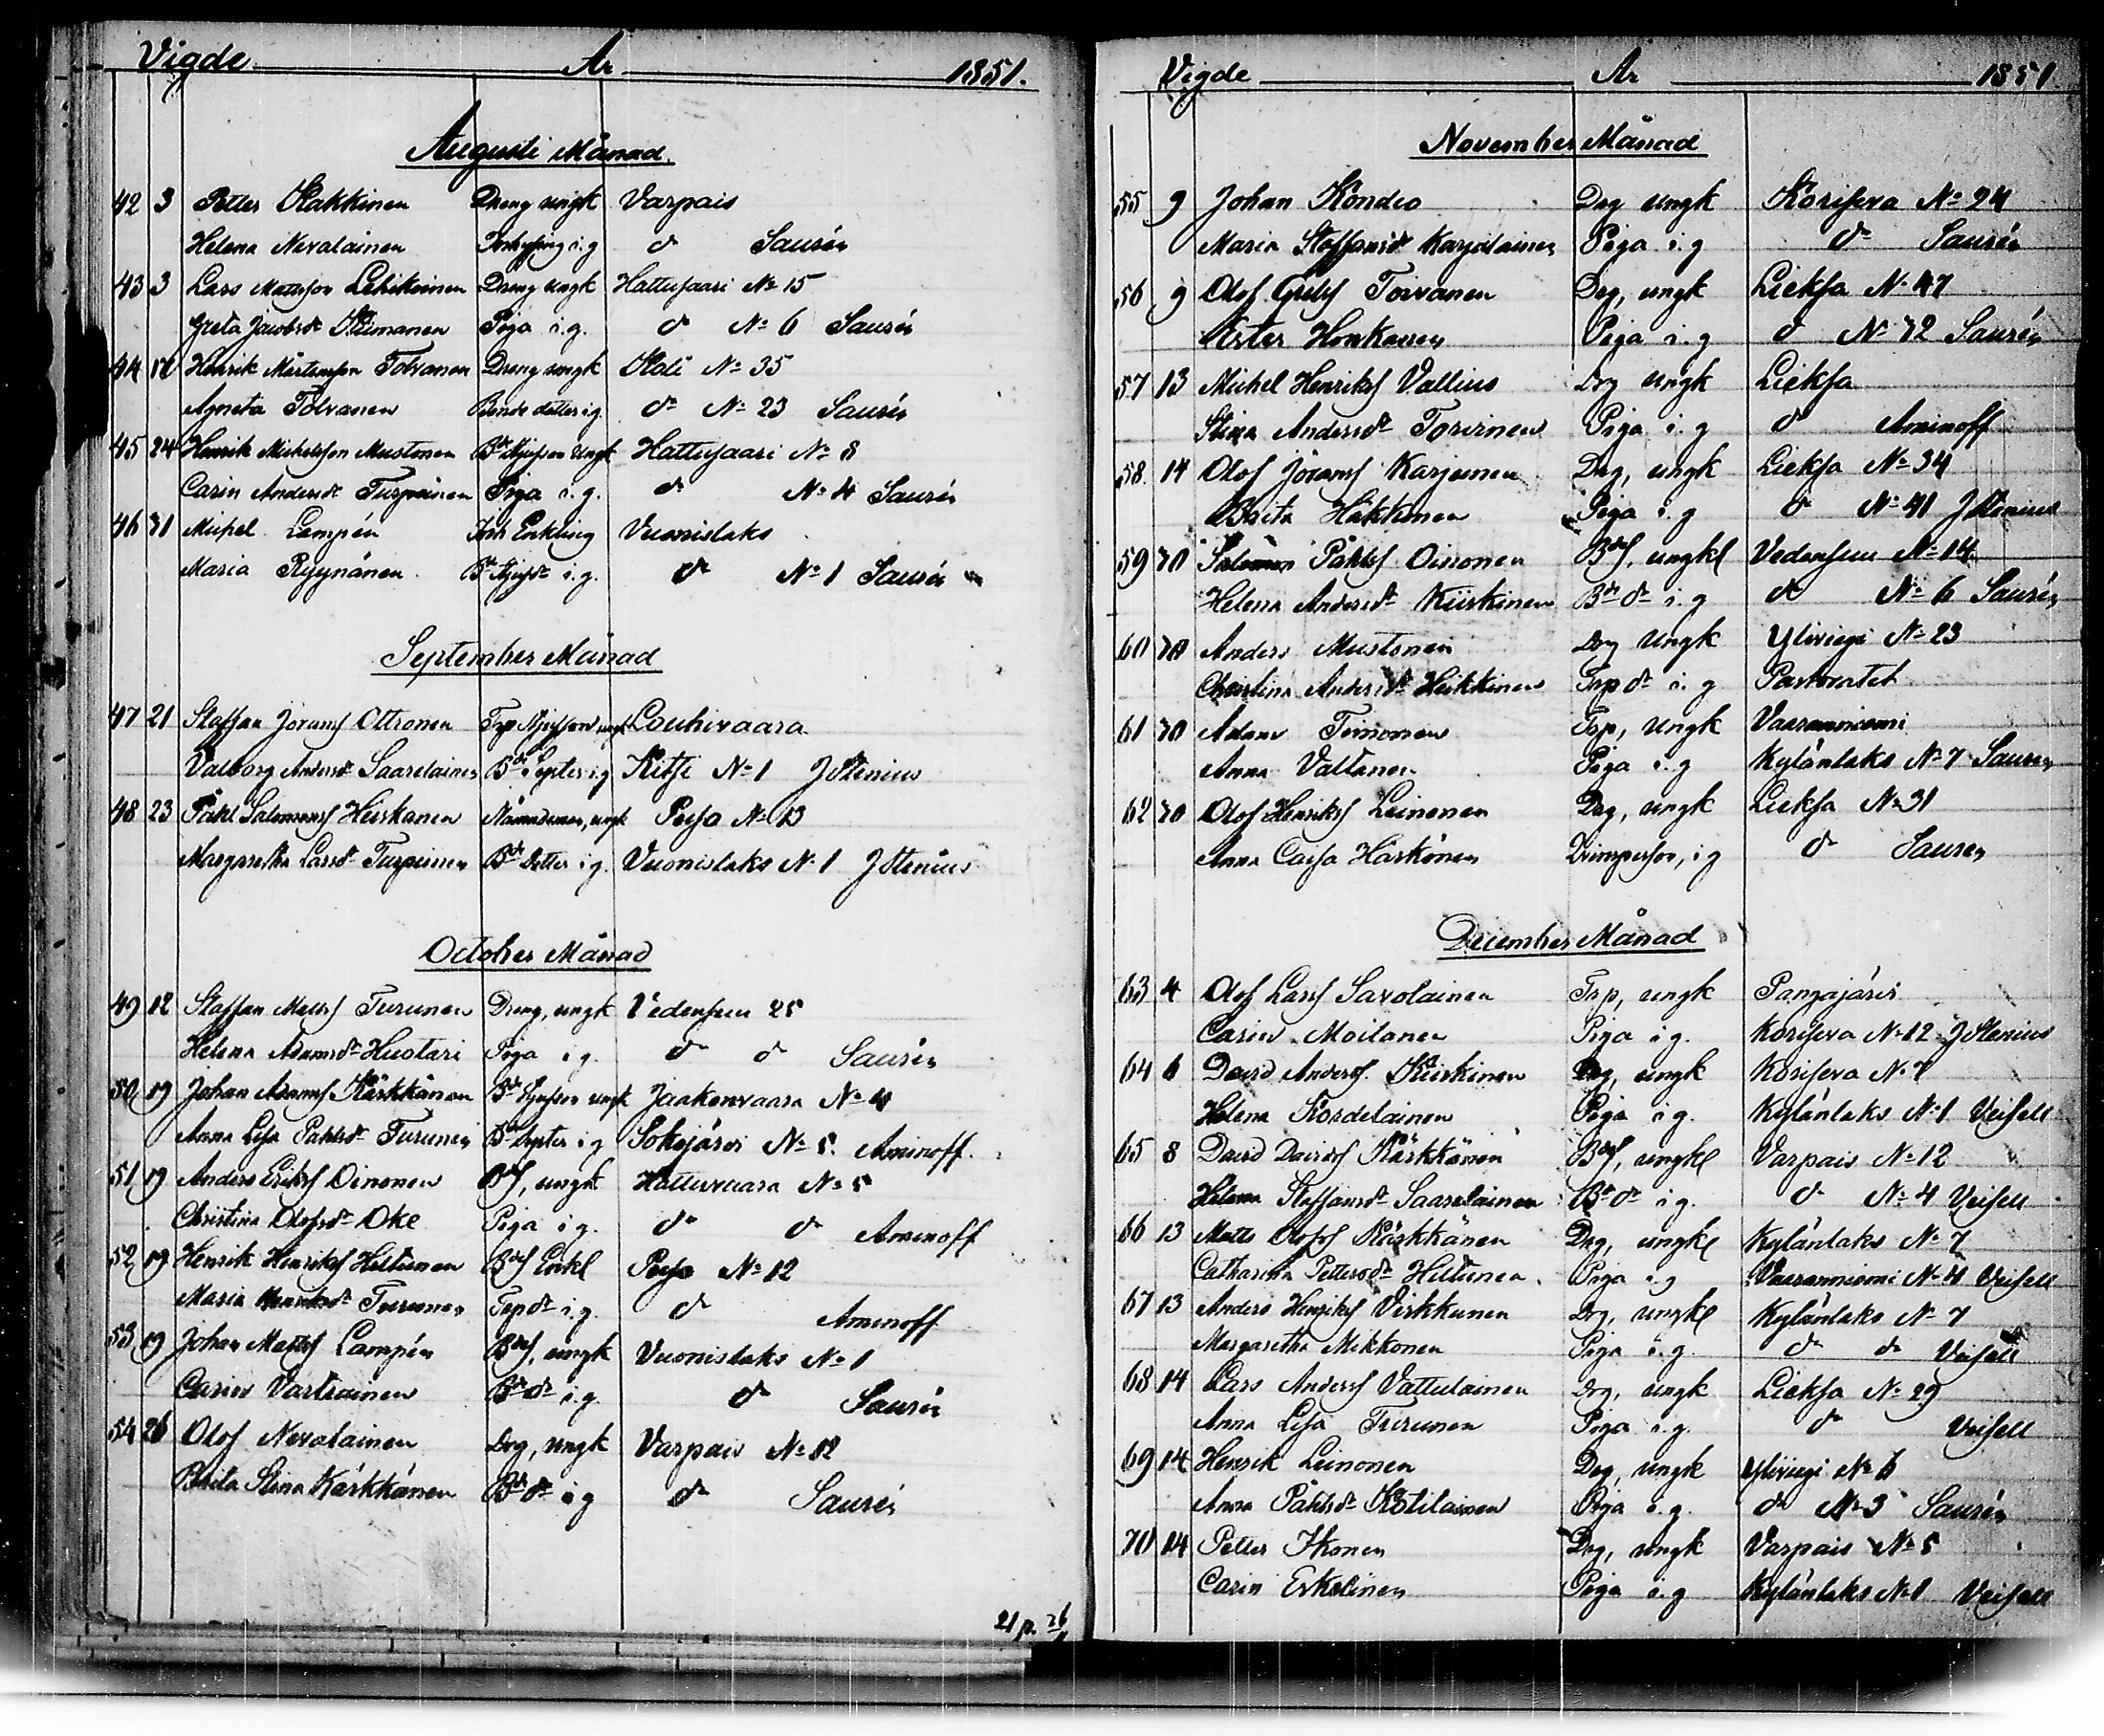 Vigde År 1851.
Augusti Månad
42 3 Petter Kakkinen Dreng ungk Varpais
Helena Nevalainen i.g do Saurén
43 3 Lars Mattsson Lehikoinen Dreng ungk Hattusaari No 15
Greta Jacobsdr Kiimanen Piga i.g. do No 6 Saurén
44 Henrik Mårtensson Tolvanen Dreng ungk Koli No 35
Agneta Tolvanen Bonde dotter i.g do No 23 Saurén
45 24 Henrik Michelsson Mustonen ungk Hattusaari No 8
Carin Andersdr Turpeinen Piga i.g. do No 4 Saurén
46 31 Michel Lampén Enkling Vuonislaks
Maria Ryynänen i.g. do No 1 Saurén
September Månad
47 21 Staffan Joransf Ottronen Louhivaara
Valborg Andersdr Saarelainen i.g Kitsi No 1 J Stenius
48 23 Påhl Salomonsf Heiskanen Nämndeman, ungk Peiso No 13
Margaretha Larsdr Turpeinen Bdr Dotter i.g. Vuonislaks No 1 J Stenius
October Månad
49 12 Staffan Mattsf Turunen Dreng, ungk Vedensuu 25
Helena Adamsdr Hustari Piga i g. do do Saurén
50 19 Johan Adamsf Kärkkänen ungk Jaakonvaara No 4
Anna Lisa Påhlsdr Turunen i g Sokojärvi No 5. Aminoff.
51 19 Anders Eriksf Oinonen Bdsf, ungk Hattuvaara No 5
Christina Olofsdr Oke Piga i g. do do Aminoff
52 19 Henrik Henriksf Hiltunen Bdsf Enkl Peiso No 12
Maria Henriksdr Turunen Torp dr i.g. do Aminoff
53 19 Johan Mattsf Lampén Bdsf, ungk Vuonislaks No 1
Carin Vartiainen Bdr dr i.g. do Saurén
54 26 Olof Nevalainen Drg, ungk Varpais No 12
Brita Stina Kärkkänen Bdr dr i g do Saurén
21 p.
Vigde År 1851.
November Månad
55 9 Johan Kondeo Drg ungk Korisevа No 24
Maria Staffansdr Karjalainen Piga i.g do Saurén
56 9 Olof Grelsf Toivanen Drg, ungk Lieksa No 47
Ester Honkanen Piga i.g do No 72 Saurén
57 13 Michel Henriksf Vallius Drg ungk Lieksa
Stina Andersdr Torvinen Piga i.g do Aminoff
58. 14 Olof Joransf Karjunen Drg, ungk Lieksa No 34
Brita Hakkinen Piga i.g do No 41 J Stenius
59 30 Salomon Påhlsf Oinonen Bdsf, ungkl Vedensuu No 14
Helena Andersdr Kiiskinen Bdr dr i.g do No 6 Saurén
60 30 Anders Mustonen Drg ungk Yliviegi No 23
Christina Andersdr Heikkinen Torp dr i. g Pastoratet
61 30 Adam Timonen Trp, ungk Vaaranniemi
Anna Valtanen Piga i.g Kylänlaks No 7 Saurén
62 30 Olof Henriksf Leinonen Drg, ungk Lieksa No 31
Anna Caisa Härkönen Qvinsperson, i g do Saurén
December Månad
63 4 Olof Larsf Savolainen Trp, ungk Pangajärvi
Carin Moilanen Piga i g. Koriseva No 12 J Stenius
64 6 David Andersf Kiiskinen Drg, ungk Koriseva No 7
Helena Kordelainen Piga i g. Kylänlaks No 1 Veisell
65 8 David Davidsf Kärkkänen Bdsf, ungkl Varpais No 12
Helena Staffansdr Saarelainen Bdr dr i g. do No 4 Veisell
66 13 Matts Olofsf Kärkkänen Drg, ungkl Kylänlaks No 7
Catharina Pettersdr Hiltunen Piga i g Vaaranniemi No 4 Veisell
67 13 Anders Henriksf Virkkunen Drg, ungkl Kylänlaks No 7
Margaretha Mikkonen Piga i.g. do do Veisell
68 14 Lars Andersf Vattulainen Drg, ungk Lieksa No 29
Anna Lisa Turunen Piga i.g. do Veisell
69 14 Henrik Leinonen Drg, ungk Yliviegi No 6
Anna Påhlsdr Kotilainen Piga i.g. do No 3 Saurén
70 14 Petter Ikonen Drg, ungk Varpais No 5
Carin Eskelinen Piga i.g Kylänlaks No 1 Veisell